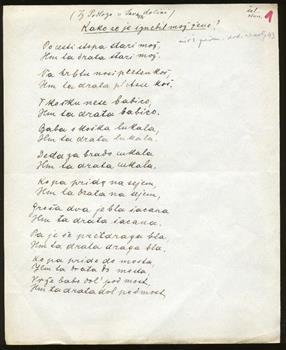 (Iz Podloga v Savinj. dolini)
Kako se je iznebil moj žene!
1
Po cesti stopa stari mož,
Hm ta drata stari mož.
Na hrbtu nosi pletenkoš,
Hm ta drata pleten koš.
V košku nese babico,
Hm ta drata babico.
Baba s koška lukala,
Hm ta drata lukala.
Deda za brado cukala,
Hm ta drata cukala.
Ko pa pride na sejem,
Hm ta drata na sejem,
Groša dva je bla šacana
Hm ta drata šacana.
Pa je še predraga bla
Hm ta drata draga bla,
Ko pa pride do mosta
Hm ta drata do mosta,
Vrže babo dol' pod most,
Hm ta drata dol pod most,